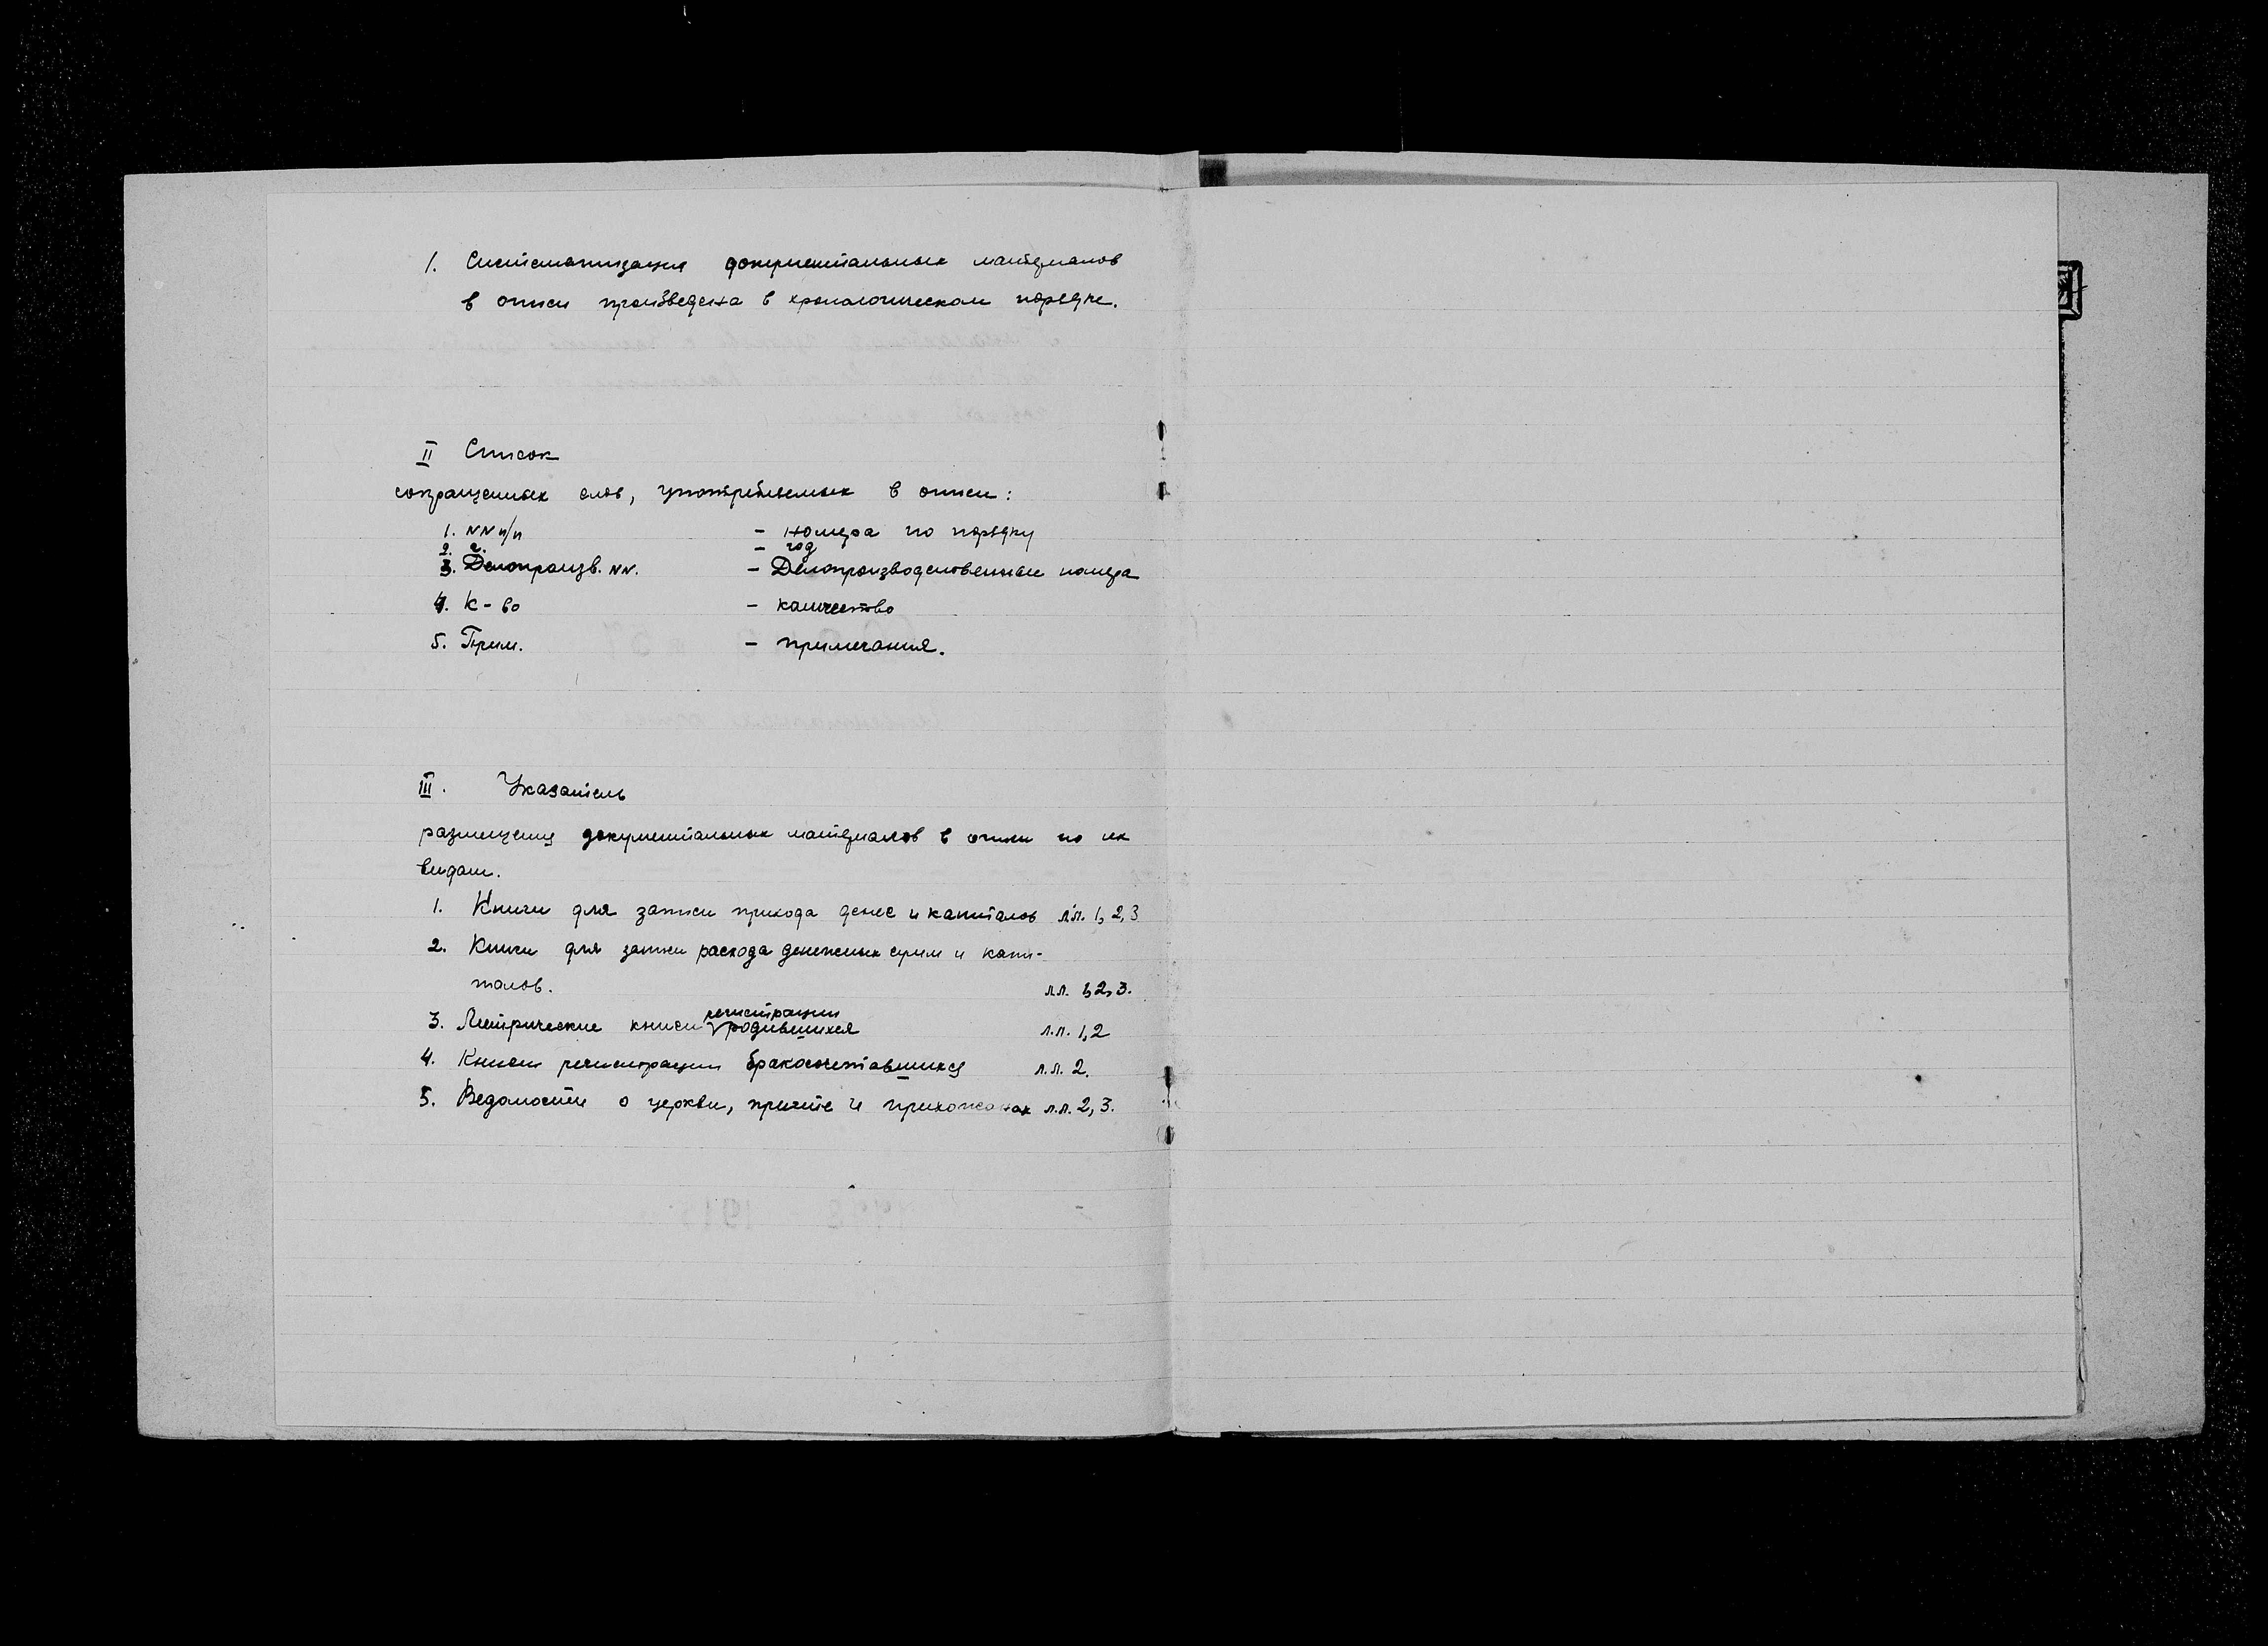 1. Систематизация документальных материалов
в описи произведена в хронологическом порядке.
II Список
сокращенных слов, употребляемых в описи:
1. NN п/п – номера по порядку
2. г. – год
3. Делопроизв. NN. – Делопроизводственные номера
4. К-во – количество
5. Прим. – примечания.
III. Указатель
размещения документальных материалов в описи по их
видам.
1. Книги для записи прихода денег и капиталов л.л. 1, 2, 3
2. Книги для записи расхода денежных сумм и капи-
талов. л.л. 1, 2, 3.
регистрации
3. Метрические книги родившихся л.л. 1, 2
4. Книги регистрации бракосочетавшихся л.л. 2.
5. Ведомости о церкви, причте и прихожанах л.л. 2, 3.